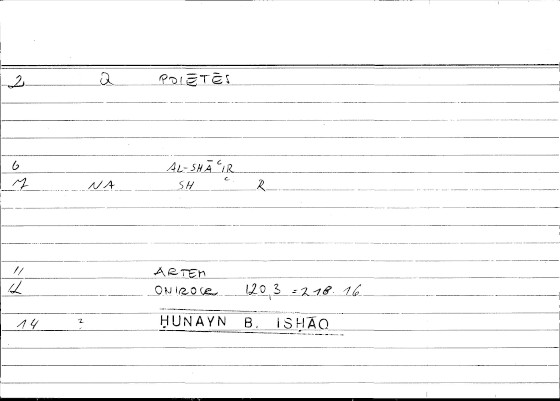 2 2 POIĒTĒS
6 AL-SHĀʿIR
7 NA SH ʿ R
11 ARTEM
12 ONIROCR 120,3 = 218.16
14 ? ḤUNAYN B. ISḤĀQ